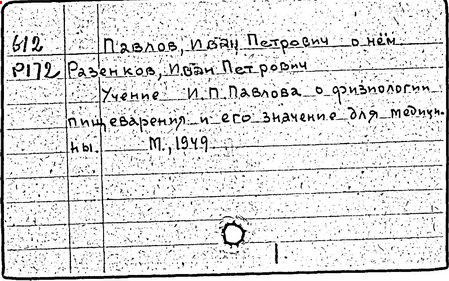 612 Павлов, Иван Петрович о нём
Р172 Разенков, Иван Петрович
Учение И.П.Павлова о физиологии
пищеварения и его значение для медици-
ны. М., 1949